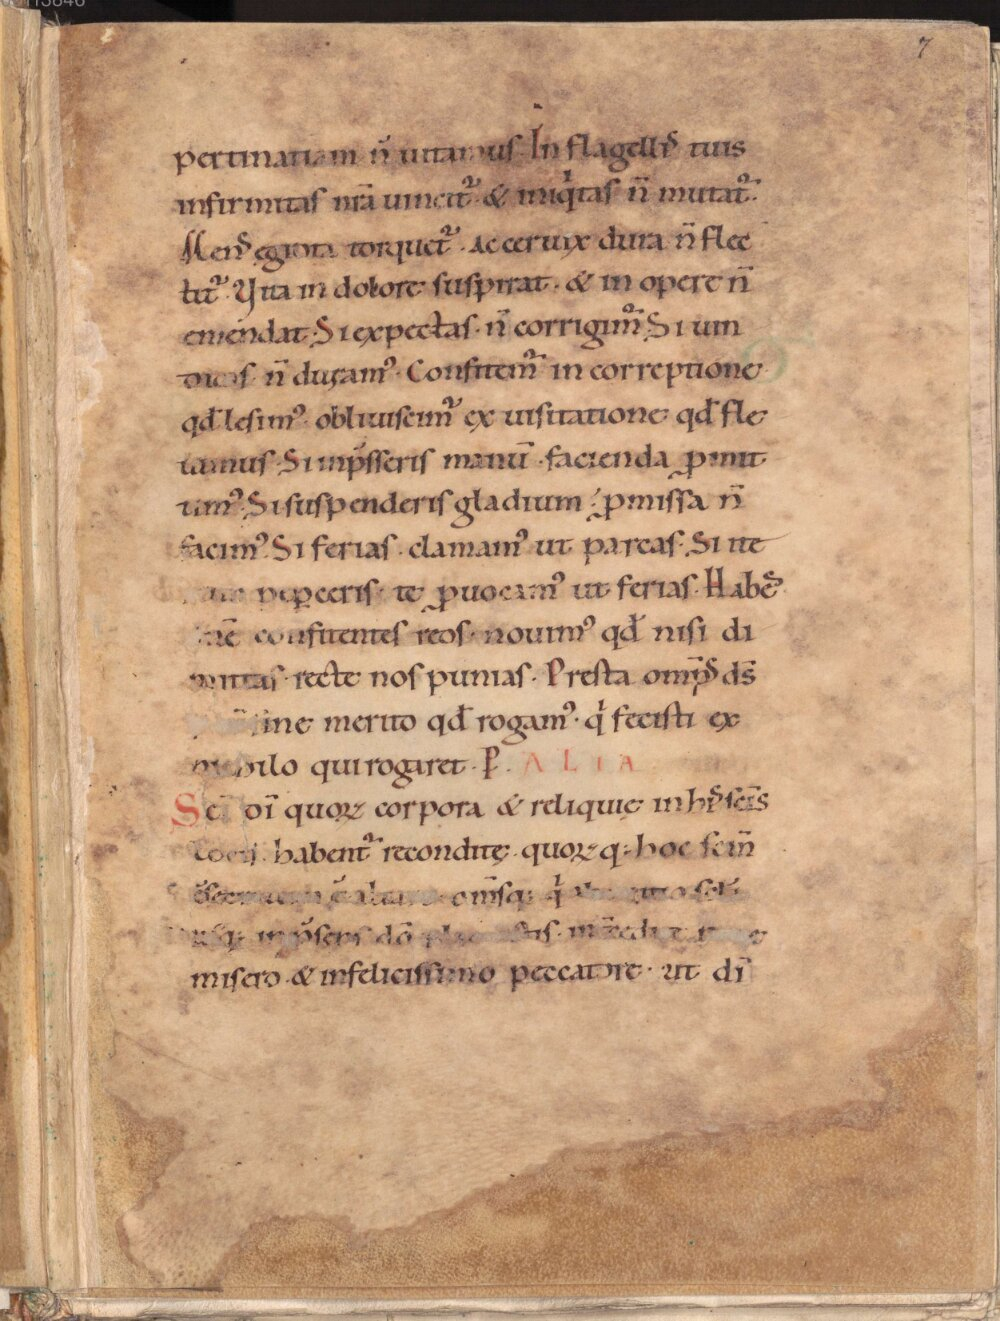 7
pertinatiam n̄ uitamus. In flagellis tuis
infirmitas nr̄a uincit᷑ & iniqͥtas n̄ mutat᷑.
Mens egrota torquet᷑. Ac ceruix dura n̄ flec
tit᷑. Vita in dolore suspirat. & in opere n̄
emendat. Si expectas. n̄ corrigim᷑. Si uin
dicas n̄ duramꝰ. Confitem᷑ in correptione
qđ lesimꝰ. obliuiscim᷑ ex uisitatione qđ fle
uimus. Si imp̄sseris manū. facienda ꝓmit
timꝰ. Si suspenderis gladium. ꝓmissa n̄
facimꝰ. Si ferias. clamamꝰ ut parcas. Si ite
peꝑceris. te ꝓuocamꝰ ut ferias. Habes
confitentes reos. nouimꝰ qđ nisi di
mittas. recte nos punias. Presta omp̄s ds̄
sine merito qđ rogamꝰ. qͥ fecisti ex
nichilo qui rogaret. P. ALIA
Sc̄i dī quoꝝ corpora & reliquię in his sc̄is
locis habent᷑ recondite. quoꝝ q; hoc sc̄m̄
om̄sq; qͥ
dō
misero & infelicissimo peccatore. ut dī